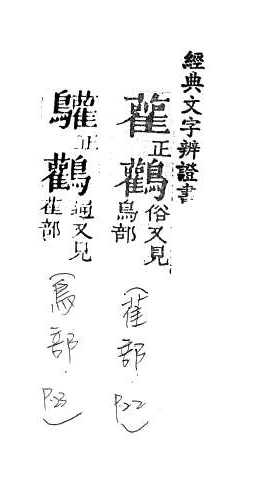 經典文字辨證書
雚正
鸛俗又見鳥部
(雚部. P.22)
正
鸛通又見雚部
(鳥部. P.23)